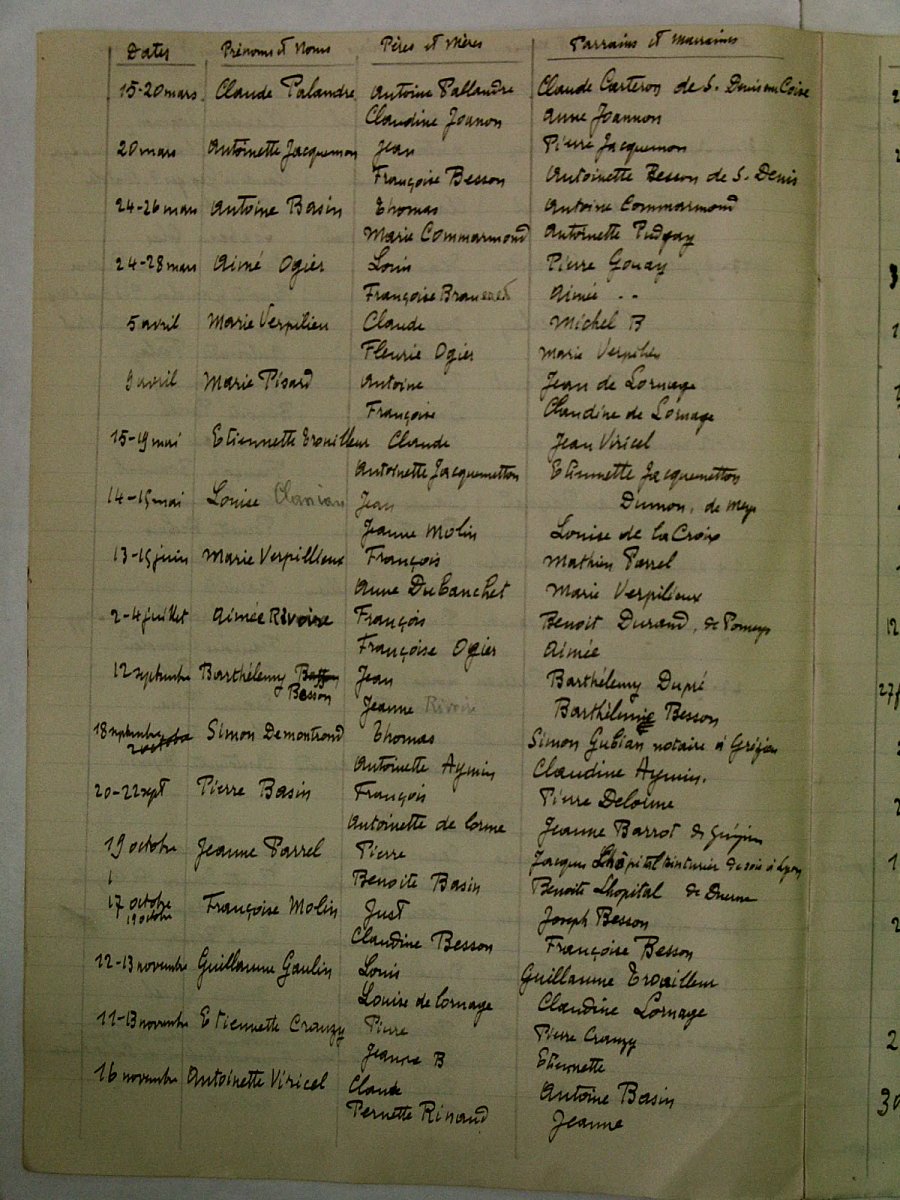 Dates Prénoms et Noms Pères et Mères Parrains et marraines
15-20 mars Claude Palandre Antoine Pallandre Claude Carteron de S. Denis sur Coise
Claudine Joanon Anne Joannon
20 mars Antoinette Jacquemon Jean Pierre Jacquemon
Françoise Besson Antoinette Besson de S. Denis
24-26 mars Antoine Basin Thomas Antoine Commarmond
Marie Commarmond Antoinette Pudgay
24-28 mars Aimé Ogier Louis Pierre Gouay
Françoise Aimée --
5 avril Marie Verpilieu Claude Michel B
Fleurie Ogier Marie
9 avril Marie Pisard Antoine Jean de Lornage
Françoise Claudine de Lornage
15-19 mai Etiennette Trouilleur Claude Jean Viricel
Antoinette Jacquemetton Etiennette Jacquemetton
14-15 mai Louise Jean Dumon, de Meys
Jeanne Molin Louise de la Croix
13-15 juin Marie Verpillieux François Mathieu Parrel
Anne Dubanchet Marie Verpilieux
2-4 juillet Aimée Rivoire François Benoit Durand, de Pomeys
Françoise Ogier Aimée
12 septembre Barthélemy Jean Barthélemy Dupré
Besson Jeanne Rivoire Barthélemie Besson
18 septembre Simon Demontrond Thomas Simon Gubian notaire à Grézieu
2 octobre Antoinette Aymin Claudine Aymin.
20-22 sept Pierre Basin François Pierre Delorme
Antoinette de lorme Jeanne Barrot de Grézieu
19 octobre Jeanne Parrel Pierre Jacques Lhôpital teinturier de soie à Lyon
Benoite Basin Benoite Lhopital de Duerne
17 octobre Françoise Molin Just Joseph Besson
19 octobre Claudine Besson Françoise Besson
12-13 novembre Guillaume Goulin Louis Guillaume Trouilleur
Louise de lornage Claudine Lornage
11-13 novembre Etiennette Crouzy Pierre Pierre Crouzy
Jeanne B Etiennette
16 novembre Antoinette Viricel Claude Antoine Basin
Pernette Rinaud Jeanne